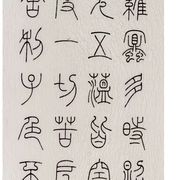 羅蜜多時照
見五蘊皆空
度一切苦厄
舍利子色不